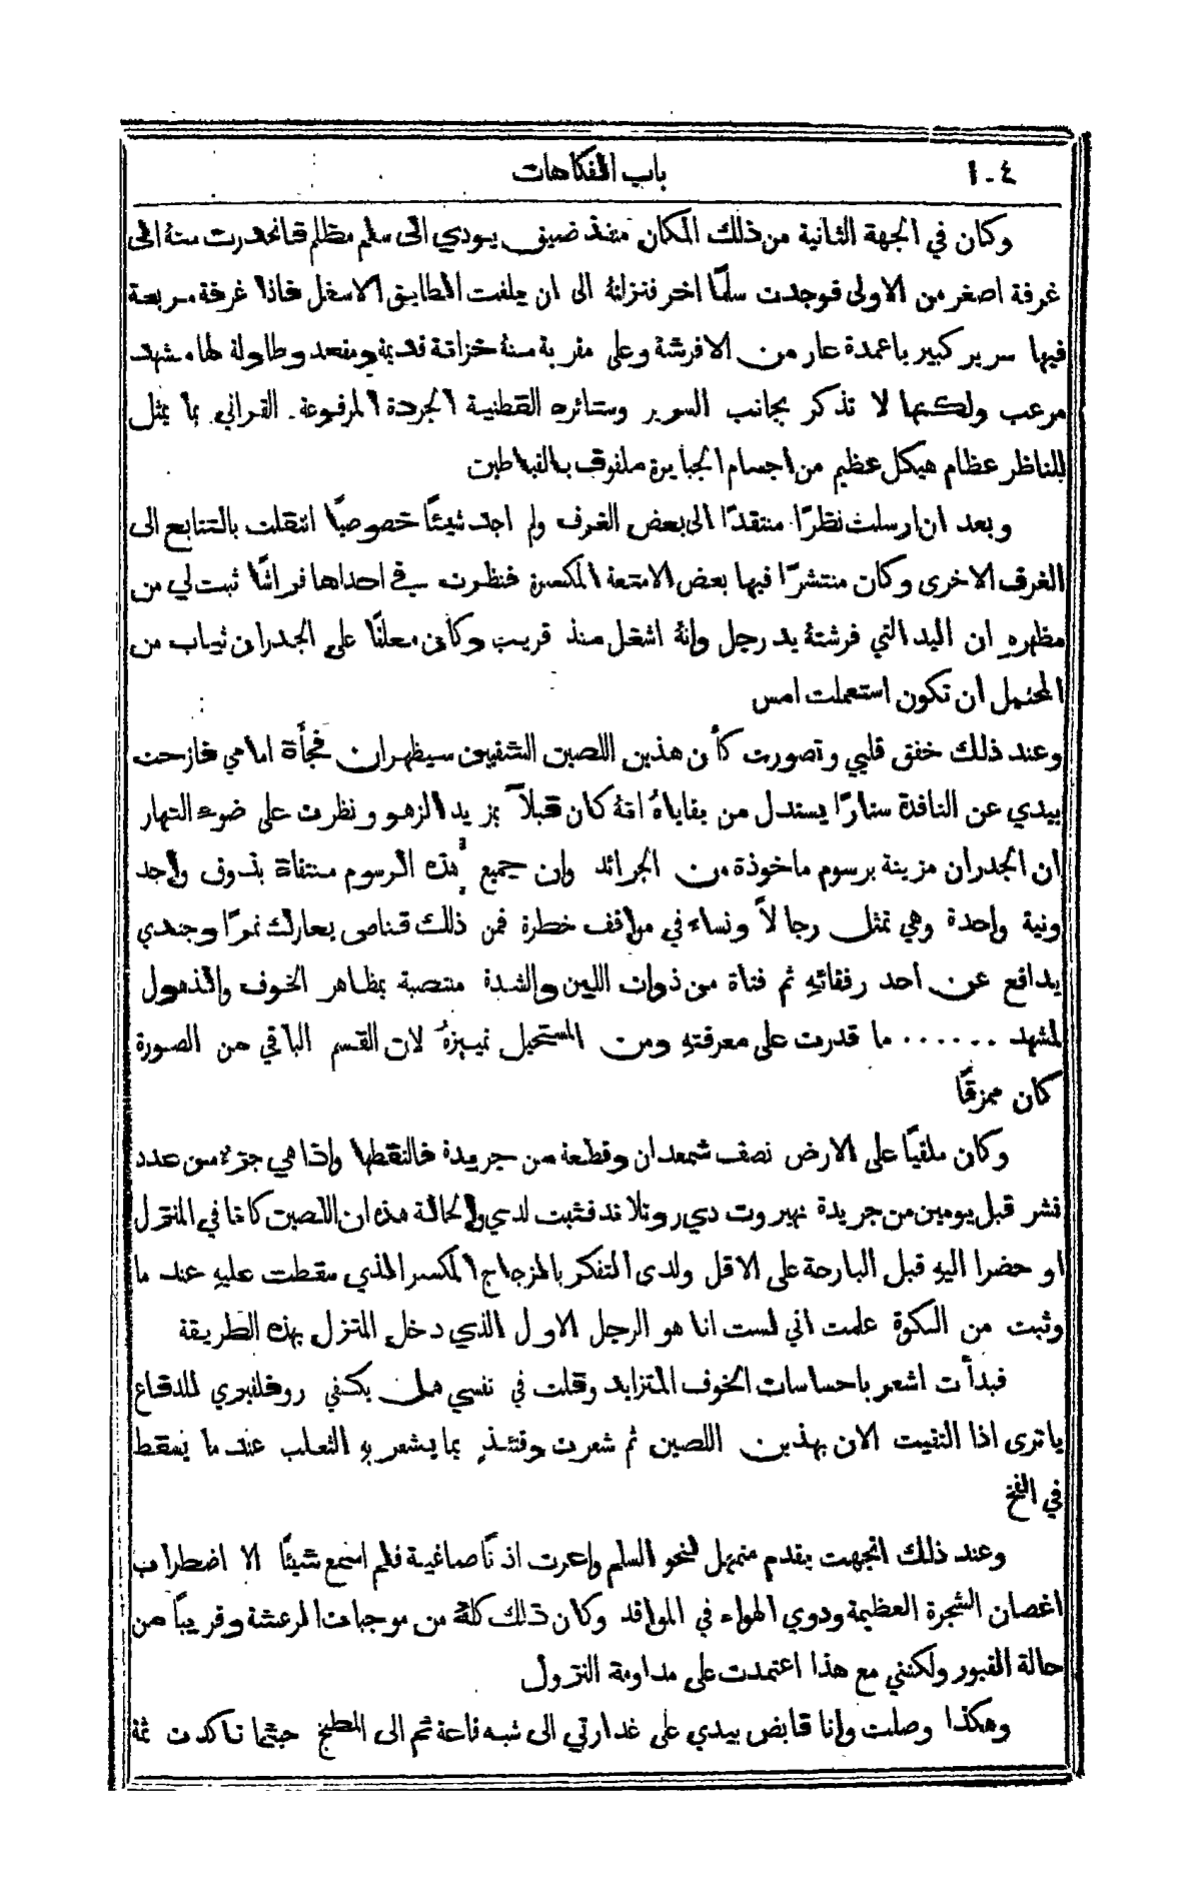 ١٠٤ باب الفكاهات
وكان في الجهة الثانية من ذلك المكان منفذ ضيق يودي الى سلم مظلم فانحدرت منهُ الى
غرفة اصغر من الاولى فوجدت سلمًا اخر فنزلتهُ الى ان بلغت الطابق الاسفل فاذا غرفة مربعة
فيها سرير كبير باعمدة عار من الافرشة وعلى مقربة منهُ خزانة قديمة ومقعد وطاولة لها مشهد
مرعب ولكنها لا تذكر بجانب السرير وستائره القطنية الجردة المرفوعة. القراني. بما يمثل
للناظر عظام هيكل عظيم من اجسام الجبابرة ملفوف بالقباطين
وبعد ان ارسلت نظرًا منتقدًا الى بعض الغرف ولم اجد شيئًا خصوصيًا انتقلت بالتتابع الى
الغرف الاخرى وكان منتشرًا فيها بعض الامتعة المكسرة فنظرت في احداها فراشًا ثبت لي من
مظهرهِ ان اليد التي فرشتهُ يد رجل وانهُ اشغل منذ قريب وكان معلقًا على الجدران ثياب من
المحتمل ان تكون استعملت امس
وعند ذلك خفق قلبي وتصورت كأن هذين اللصين الشقيين سيظهران فجأة امامي فازحت
بيدي عن النافذة ستارًا يستدل من بقاياهُ انهُ كان قبلاً بزيد الزهو ونظرت على ضوء النهار
ان الجدران مزينة برسوم ماخوذة من الجرائد وان جميع هذه الرسوم منتقاة بذوق واحد
ونية واحدة وهي تمثل رجالاً ونساء في مواقف خطرة فمن ذلك قناص يعارك نمرًا وجندي
يدافع عن أحد رفقائهِ ثم فتاة من ذوات اللين والشدة منتصبة بمظاهر الخوف والذهول
لمشهد ...... ما قدرت على معرفتهِ ومن المستحيل تمييزهُ لان القسم الباقي من الصورة
كان ممزقًا
وكان ملقيًا على الارض نصف شمعدان وقطعة من جريدة فالتقطتها واذا هي جزء من عدد
نشر قبل يومين من جريدة نهيروت دي روتلاند فثبت لدي والحالة هذه ان اللصين كانا في المنزل
او حضرا اليهِ قبل البارحة على الاقل ولدى التفكر بالزجاج المكسر الذي سقطت عليهِ عند ما
وثبت من الكوة علمت اني لست انا هو الرجل الاول الذي دخل المنزل بهذه الطريقة
فبدأت اشعر باحساسات الخوف المتزايد وقلت في نفسي هل يكفي روفلفري للدفاع
يا ترى اذا التقيت الان بهذين اللصين ثم شعرت وقتئذٍ بما يشعر بهِ الثعلب عند ما يسقط
في الفخ
وعند ذلك اتجهت بقدم متمهل نحو السلم واعرت اذنًا صاغية فلم اسمع شيئًا الا اضطراب
اغصان الشجرة العظيمة ودوي الهواء في المواقد وكان ذلك كلهُ من موجبات الرعشة وقريبًا من
حالة القبور ولكنني مع هذا اعتمدت على مداومة النزول
وهكذا وصلت وانا قابض بيدي على غدارتي الى شبه قاعة ثم الى المطبخ حيثما تاكدت ثمة